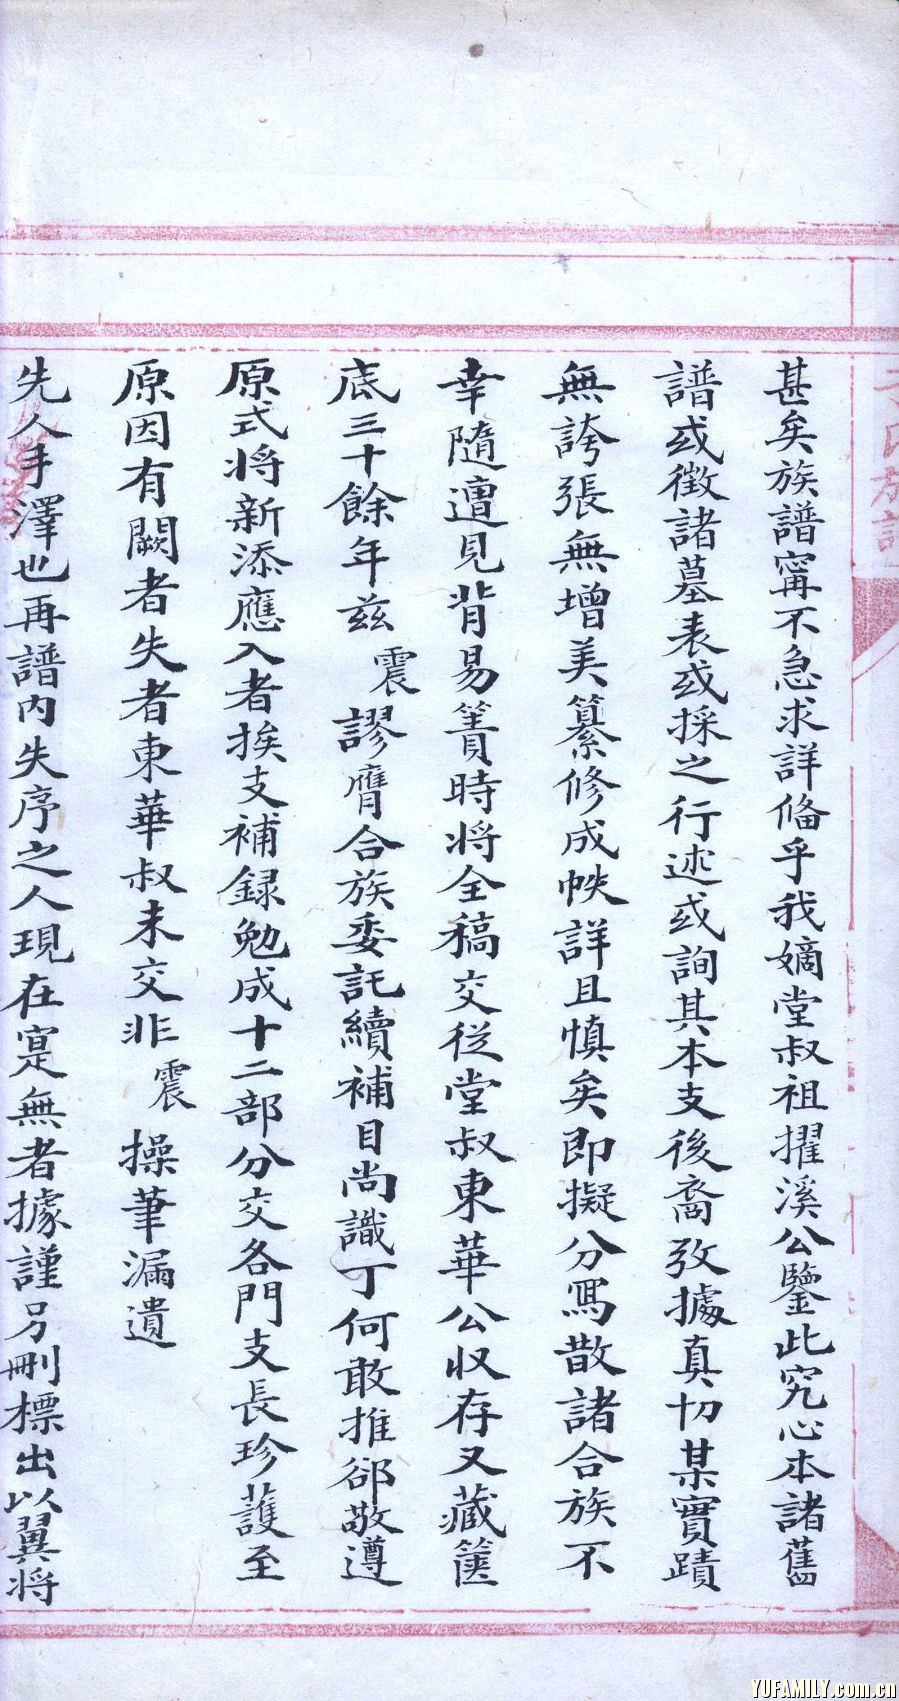 甚矣族譜甯不急求詳俻乎我嫡堂叔祖擢溪公鑒此究心本諸舊
譜或徵諸墓表或採之行述或詢其本支後裔攷據真切某實蹟
無誇張無增美纂修成帙詳且慎矣即擬分寫散諸合族不
幸隨遭見背易簀時將全稿交從堂叔東華公収存又藏篋
底三十餘年兹震謬膺合族委託續補目尚識丁何敢推郤敬遵
原式將新添應入者挨支補録勉成十二部分交各門支長珍護至
原因有闕者失者東華叔未交非震操筆漏遺
先人手澤也再譜内失序之人現在寔無者據謹另刪標出以翼将
YUFAMILY.com.cn